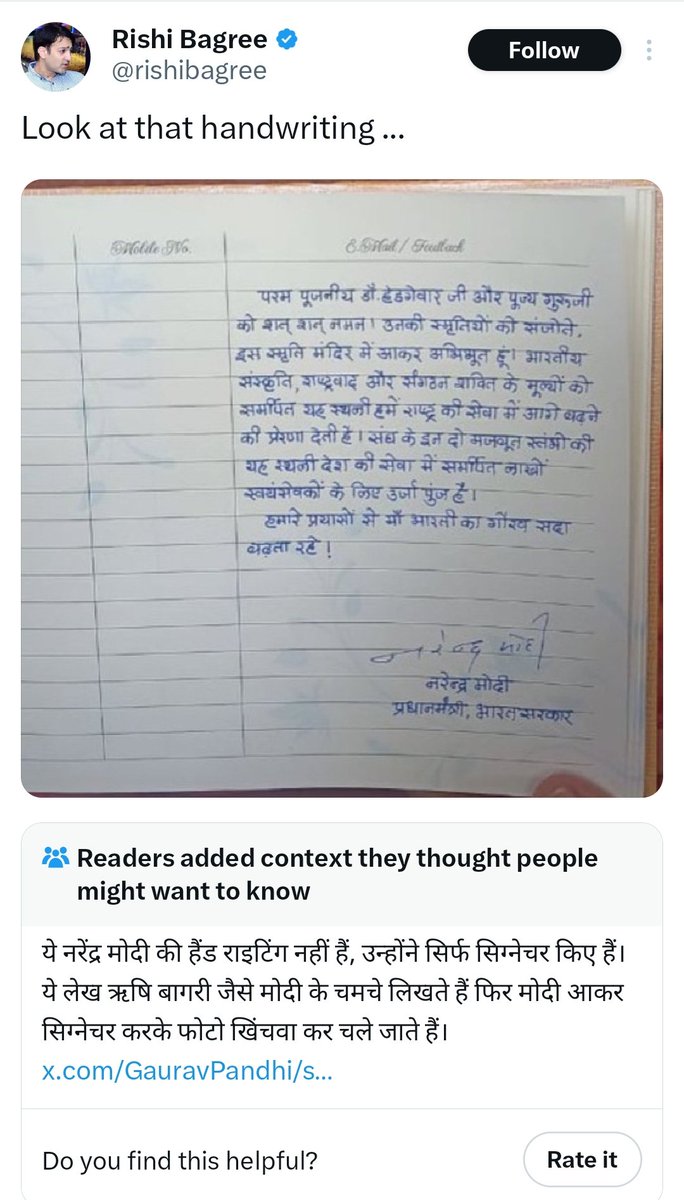 Rishi Bagree
@rishibagree
Follow
Look at that handwriting ...
Mobile No.
E.Mail / Feedback
परम पूजनीय डॉ. हेडगेवार जी और पूज्य गुरुजी
को शत् शत् नमन। उनकी स्मृतियों को संजोते,
इस स्मृति मंदिर में आकर अभिभूत हूं। भारतीय
संस्कृति, राष्ट्रवाद और संगठन शक्ति के मूल्यों को
समर्पित यह स्थली हमें राष्ट्र की सेवा में आगे बढ़ने
की प्रेरणा देती है। संघ के इन दो मजबूत स्तंभों की
यह स्थली देश की सेवा में समर्पित लाखों
स्वयंसेवकों के लिए उर्जा पुंज है।
हमारे प्रयासों से माँ भारती का गौरव सदा
बढ़ता रहे!
नरेन्द्र मोदी
नरेन्द्र मोदी
प्रधानमंत्री, भारत सरकार
Readers added context they thought people
might want to know
ये नरेंद्र मोदी की हैंड राइटिंग नहीं हैं, उन्होंने सिर्फ सिग्नेचर किए हैं।
ये लेख ऋषि बागरी जैसे मोदी के चमचे लिखते हैं फिर मोदी आकर
सिग्नेचर करके फोटो खिंचवा कर चले जाते हैं।
x.com/GauravPandhi/s...
Do you find this helpful?
Rate it